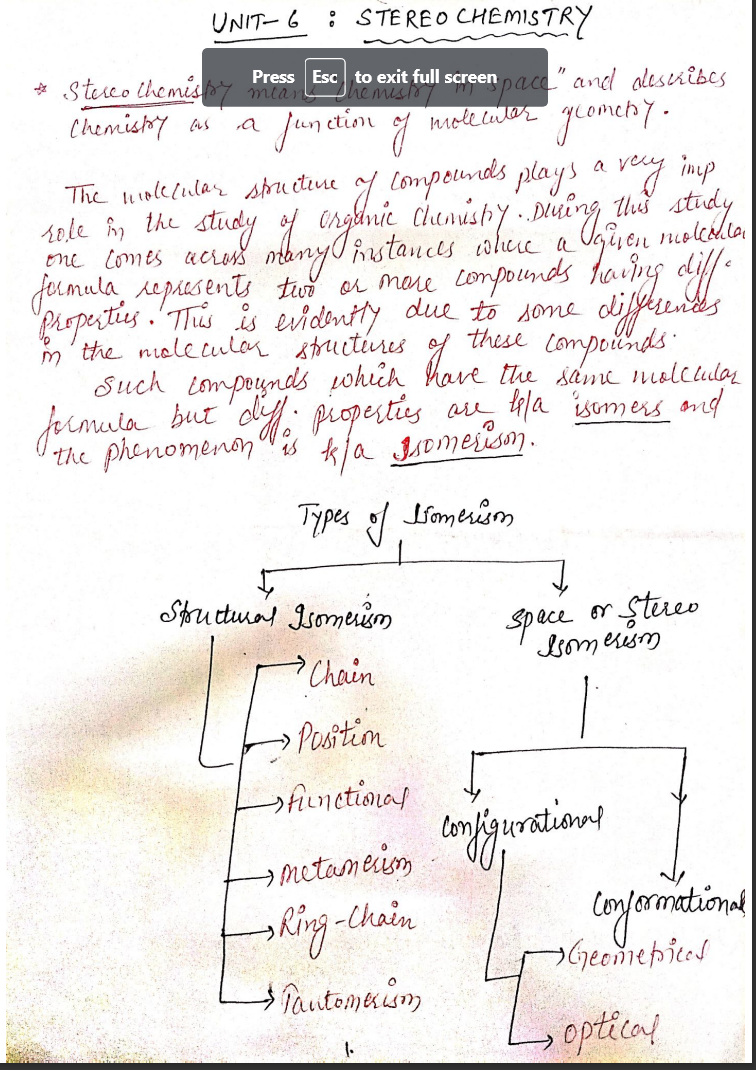 UNIT-6 : STEREO CHEMISTRY
Press Esc to exit full screen
* Stereo Chemistry means "chemistry in space" and describes
Chemistry as a function of molecular geometry.
The molecular structure of compounds plays a very imp
role in the study of Organic Chemistry. During this study
one comes across many instances where a given molecular
formula represents two or more compounds having diff.
properties. This is evidently due to some differences
in the molecular structures of these compounds.
Such compounds which have the same molecular
formula but diff. properties are k/a isomers and
the phenomenon is k/a Isomerism.
Types of Isomerism
Structural Isomerism
Space or Stereo
Isomerism
Chain
Position
Functional
Metamerism
Ring-Chain
Tautomerism
Configurational
Conformational
Geometrical
Optical
1.